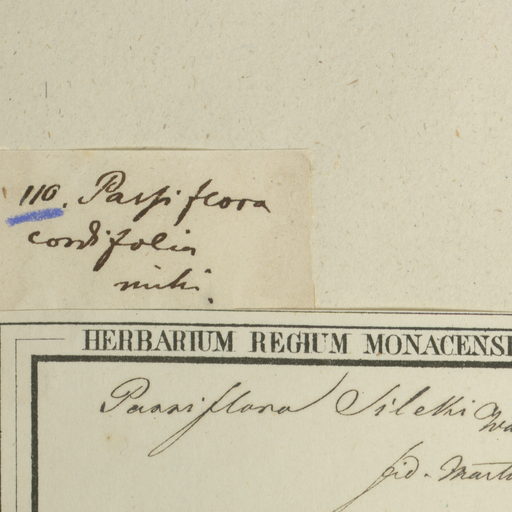 110. Passiflora
cordifolia
mihi.
HERBARIUM REGIUM MONACENS
Passiflora
fid. Mart